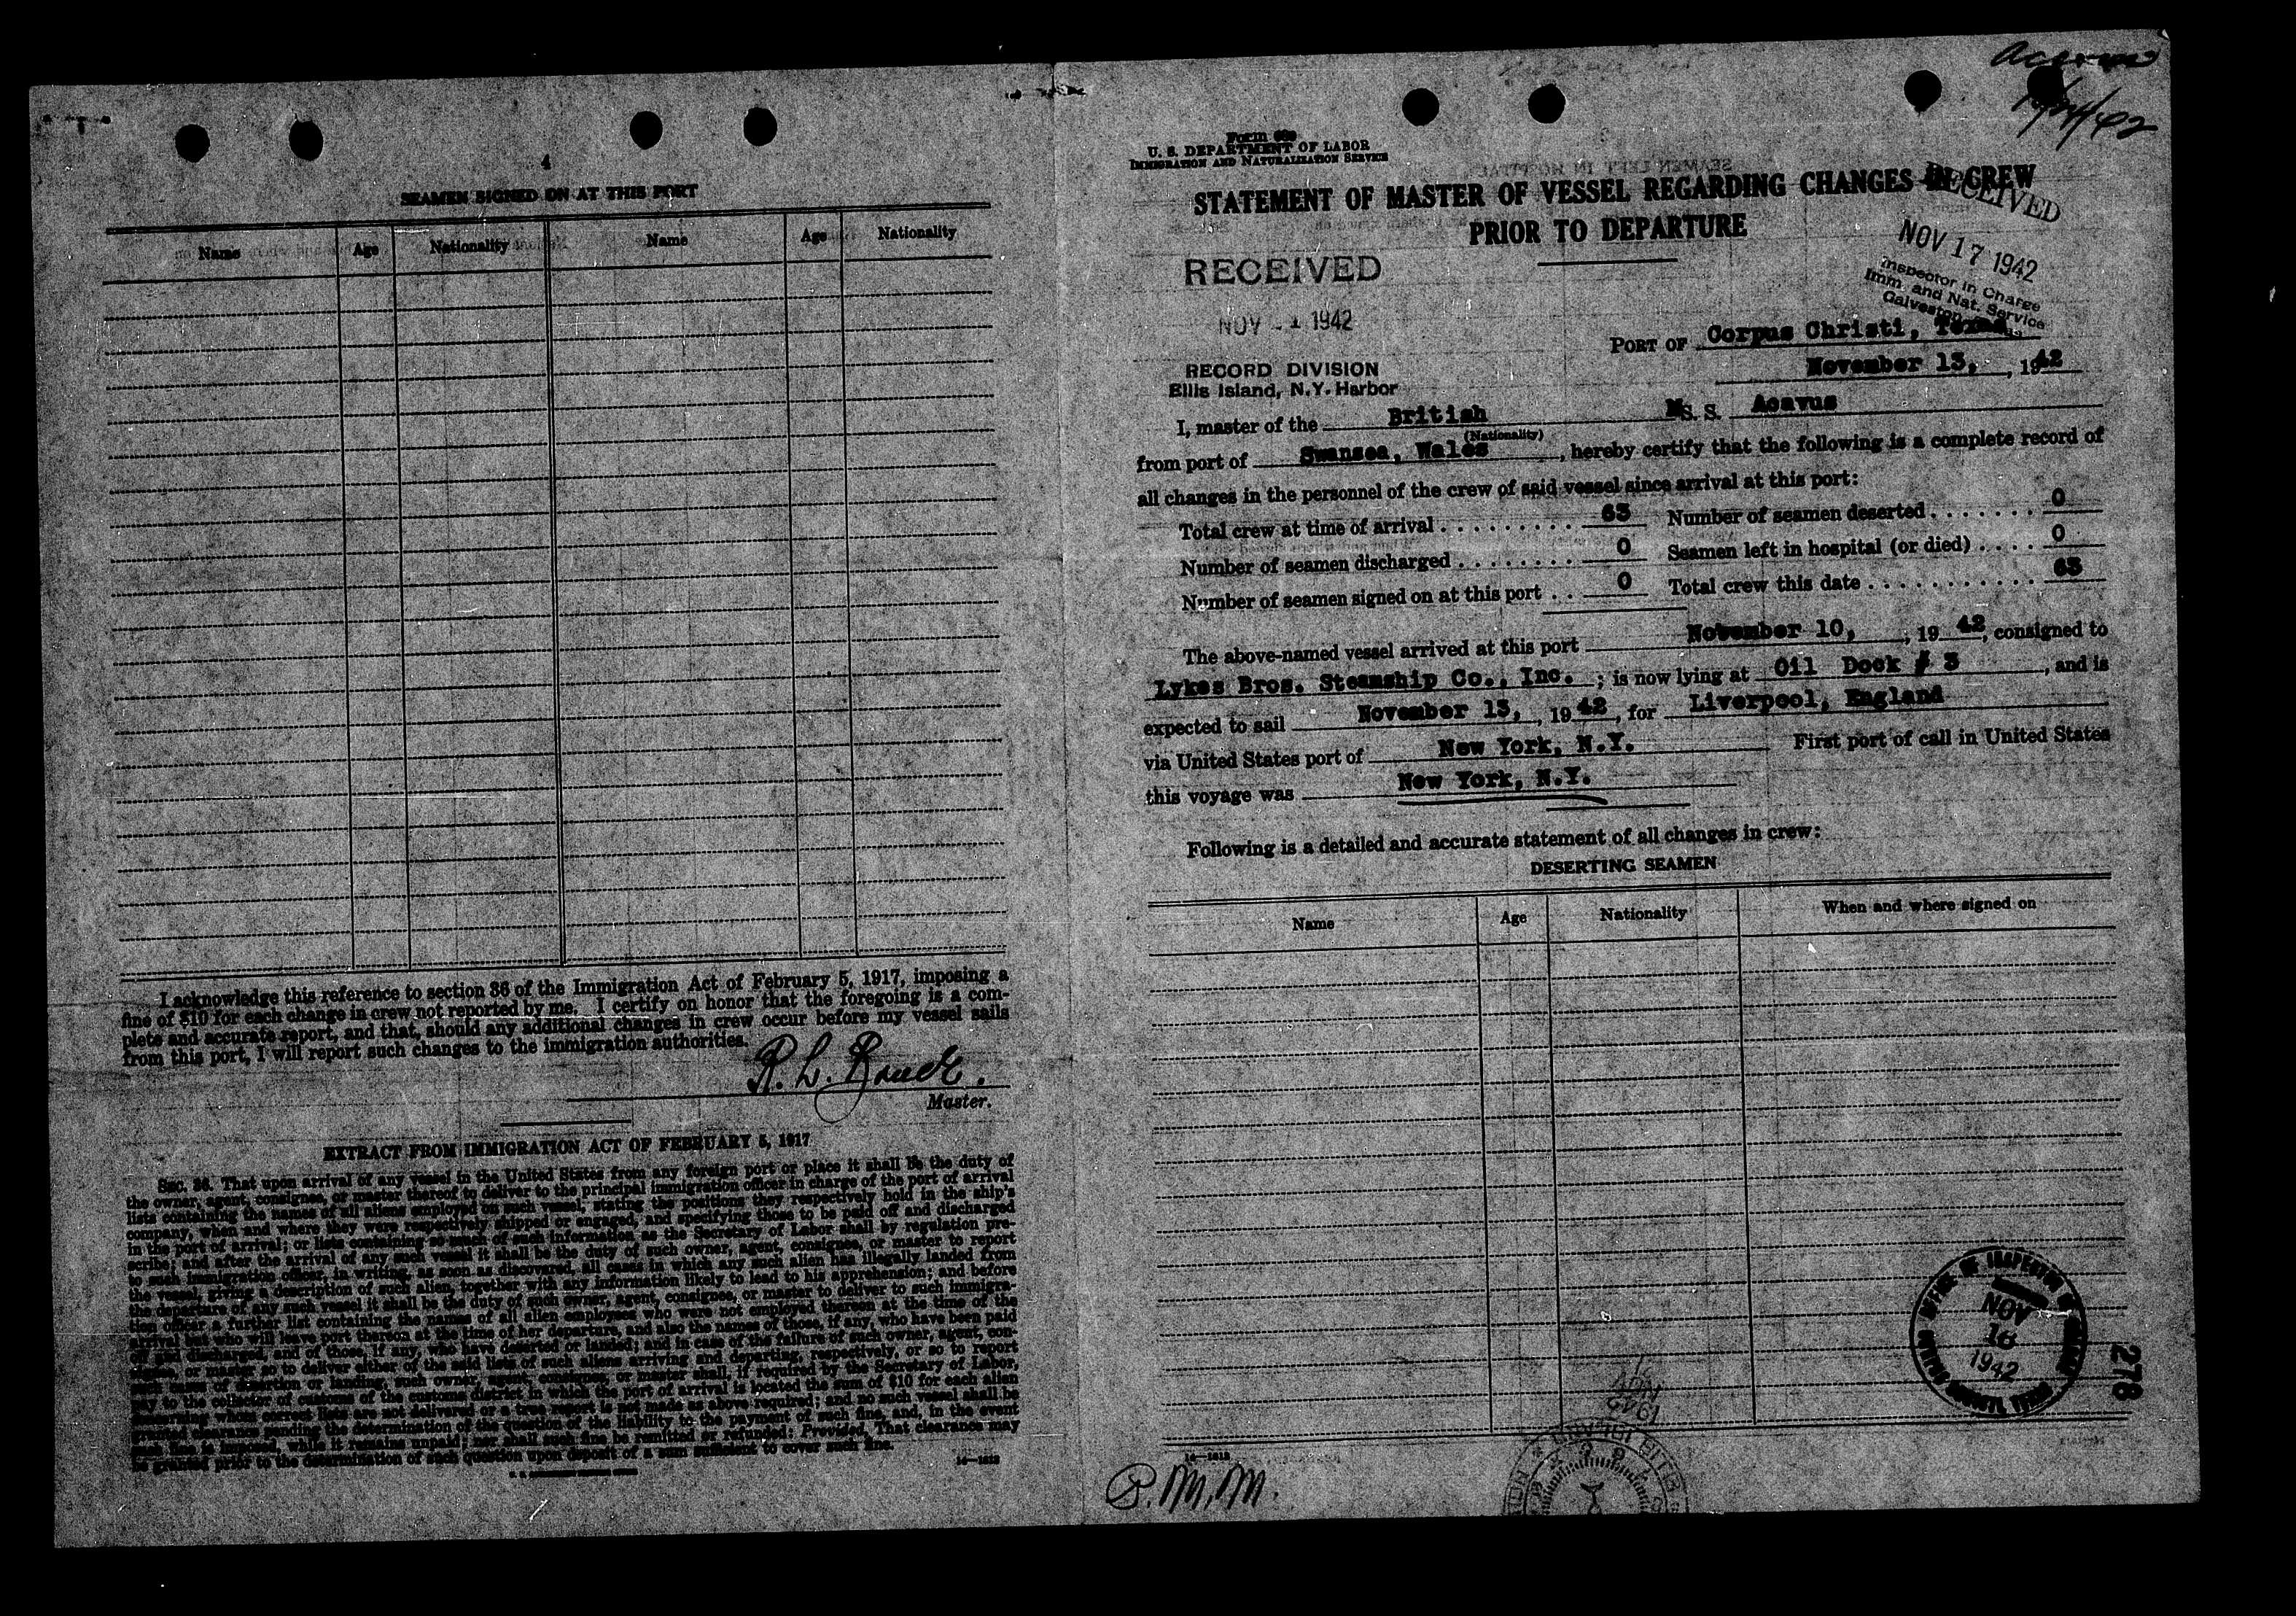 4
SEAMEN SIGNED ON AT THIS PORT
Name Age Nationality Name Age Nationality
I acknowledge this reference to section 36 of the Immigration Act of February 5, 1917, imposing a
fine of $10 for each change in crew not reported by me. I certify on honor that the foregoing is a com-
plete and accurate report, and that, should any additional changes in crew occur before my vessel sails
from this port, I will report such changes to the immigration authorities.
R. L.
Master.
EXTRACT FROM IMMIGRATION ACT OF FEBRUARY 5, 1917
Sec. 36. That upon arrival of any vessel in the United States from any foreign port or place it shall be the duty of
the owner, agent, consignee, or master thereof to deliver to the principal immigration officer in charge of the port of arrival
lists containing the names of all aliens employed on such vessel, stating the positions they respectively hold in the ship's
company, when and where they were respectively shipped or engaged, and specifying those to be paid off and discharged
in the port of arrival; or lists containing so much of such information as the Secretary of Labor shall by regulation pre-
scribe; and after the arrival of any such vessel it shall be the duty of such owner, agent, consignee, or master to report
to such immigration officer, in writing, as soon as discovered, all cases in which any such alien has illegally landed from
the vessel, giving a description of such alien, together with any information likely to lead to his apprehension; and before
the departure of any such vessel it shall be the duty of such owner, agent, consignee, or master to deliver to such immigra-
tion officer a further list containing the names of all alien employees who were not employed thereon at the time of the
arrival but who will leave port thereon at the time of her departure, and also the names of those, if any, who have been paid
off and discharged, and of those, if any, who have deserted or landed; and in case of the failure of such owner, agent, con-
signee, or master so to deliver either of the said lists of such aliens arriving and departing, respectively, or so to report
such cases of desertion or landing, such owner, agent, consignee, or master shall, if required by the Secretary of Labor,
pay to the collector of customs of the customs district in which the port of arrival is located the sum of $10 for each alien
concerning whom correct lists are not delivered or a true report is not made as above required; and no such vessel shall be
granted clearance pending the determination of the question of the liability to the payment of such fine, and, in the event
such fine is imposed, while it remains unpaid; nor shall such fine be remitted or refunded: Provided, That clearance may
be granted prior to the determination of such question upon deposit of a sum sufficient to cover such fine.
14—1613
Form
U. S. DEPARTMENT OF LABOR
IMMIGRATION AND NATURALIZATION SERVICE
STATEMENT OF MASTER OF VESSEL REGARDING CHANGES IN CREW
PRIOR TO DEPARTURE
RECEIVED
NOV 17 1942
Inspector in Charge
Imm. and Nat. Service
Galveston,
RECEIVED
NOV 1942
RECORD DIVISION
Ellis Island, N.Y. Harbor
PORT OF Corpus Christi, Texas
November 13, , 1942
I, master of the British M S. S. Acavus
(Nationality)
from port of Swansea, Wales , hereby certify that the following is a complete record of
all changes in the personnel of the crew of said vessel since arrival at this port:
Total crew at time of arrival . . . . . . . . . 63 Number of seamen deserted . . . . . . . 0
Number of seamen discharged . . . . . . . . 0 Seamen left in hospital (or died) . . . . 0
Number of seamen signed on at this port . . 0 Total crew this date . . . . . . . . . . . 63
The above-named vessel arrived at this port November 10, , 19 42, consigned to
Lykes Bros. Steamship Co., Inc. ; is now lying at Oil Dock # 3 , and is
expected to sail November 13, , 19 42, for Liverpool, England
via United States port of New York, N.Y. First port of call in United States
this voyage was New York, N.Y.
Following is a detailed and accurate statement of all changes in crew:
DESERTING SEAMEN
Name Age Nationality When and where signed on
NOV
16
1942
278
14—1613